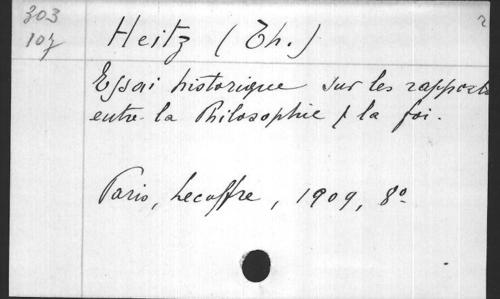 303
107
Heitz (Th.)
Essai historique sur les rapports
entre la Philosophie & la foi.
Paris, Lecoffre, 1909, 8º